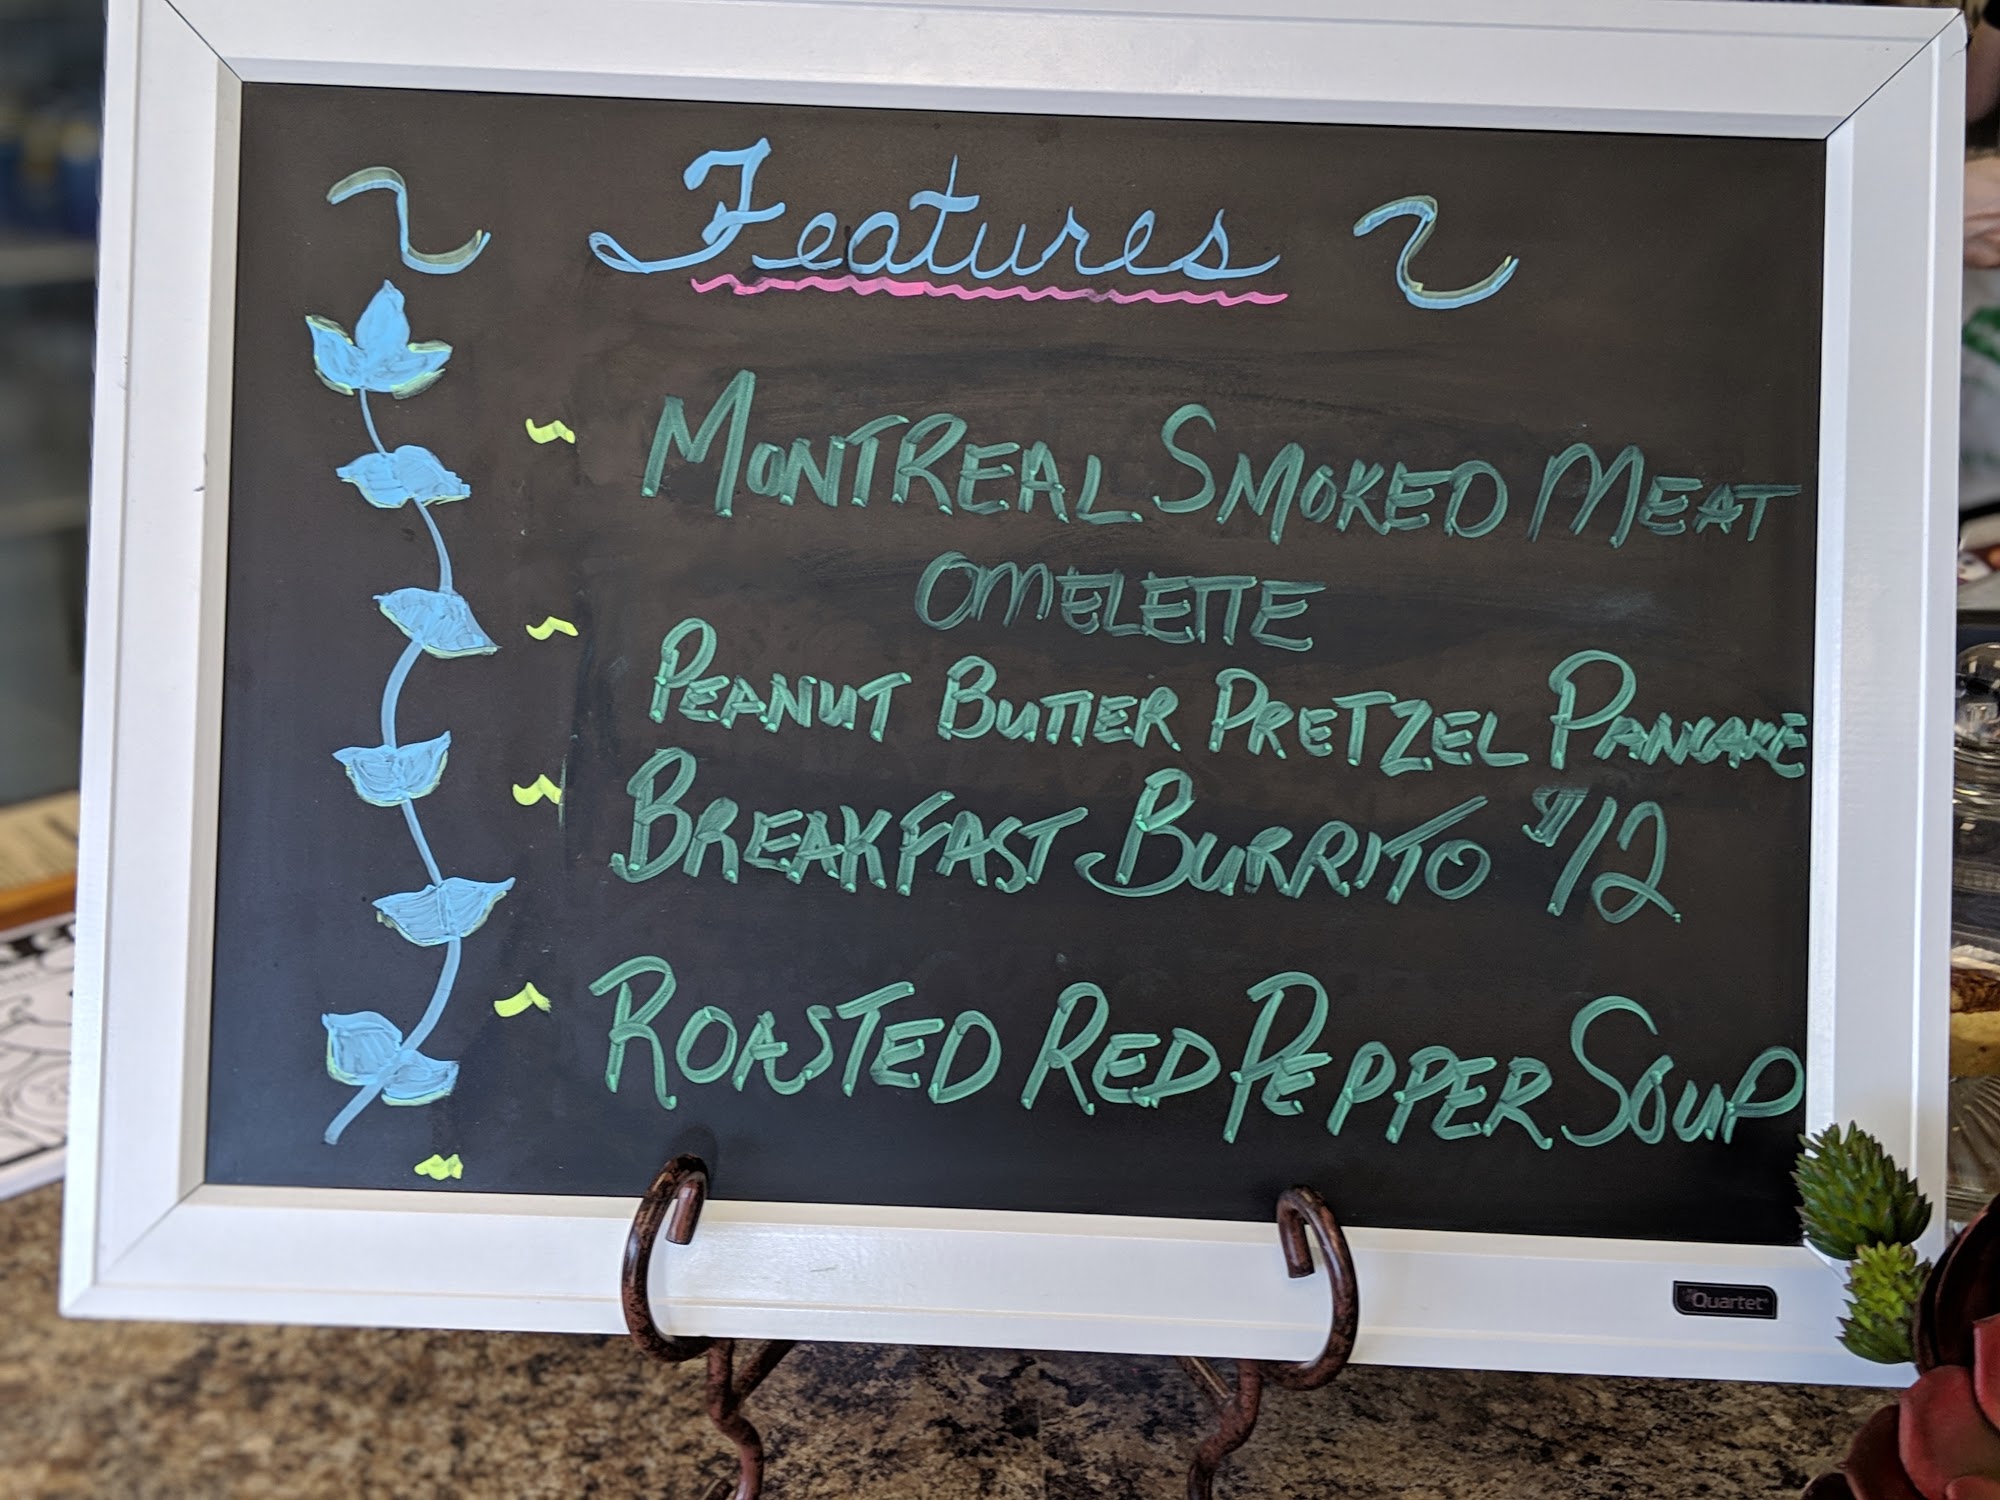 Features
MONTREAL SMOKED MEAT
OMELETTE
PEANUT BUTTER PRETZEL PANCAKE
BREAKFAST BURRITO $12
ROASTED RED PEPPER SOUP
Quartet